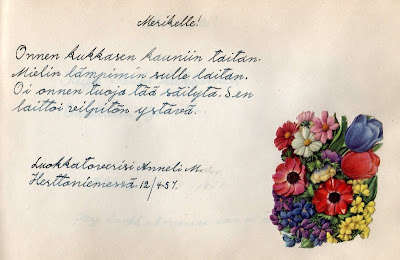 Merikelle!
Onnen kukkasen kauniin taitan.
Mielin lämpimin sulle laitan.
Oi onnen tuoja tää säilytä. Sen
laittoi vilpitön ystävä.
Luokkatoverisi Anneli M.
Herttoniemessä. 12/4-57.